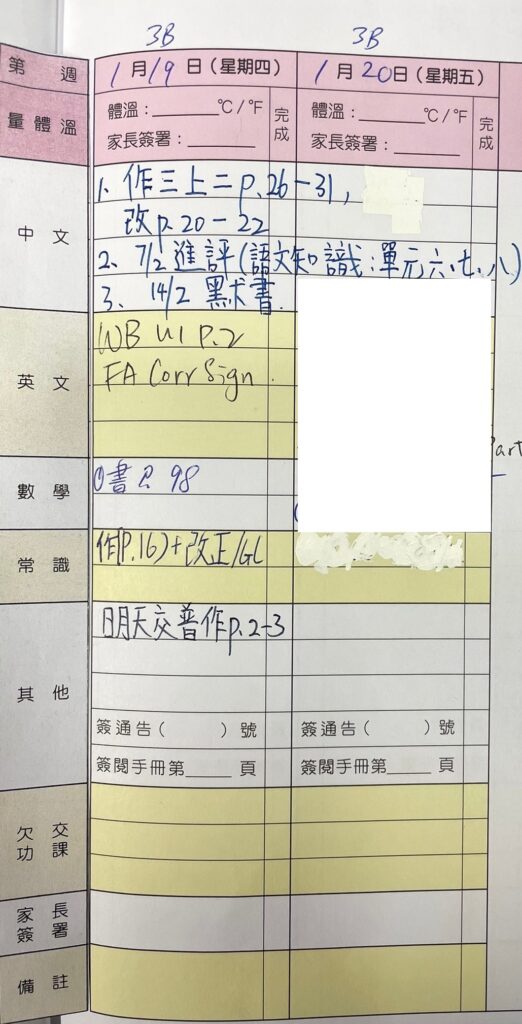 3B 3B
第 週 1月19日（星期四） 1月20日（星期五）
量體溫 體溫：______℃/℉ 完成 體溫：______℃/℉ 完成
家長簽署：______ 家長簽署：______
中文 1. 作三上二 p.26-31，
改 p.20-22
2. 7/2 進評（語文知識：單元六、七、八）
3. 14/2 默求書.
英文 WB U1 P.2
FA Corr Sign.
art
數學 ①書 P. 98
常識 作(P.16)+改正/GL
其他 明天交普作p.2-3
簽通告（ ）號 簽通告（ ）號
簽閱手冊第____頁 簽閱手冊第____頁
欠交功課
家長簽署
備註